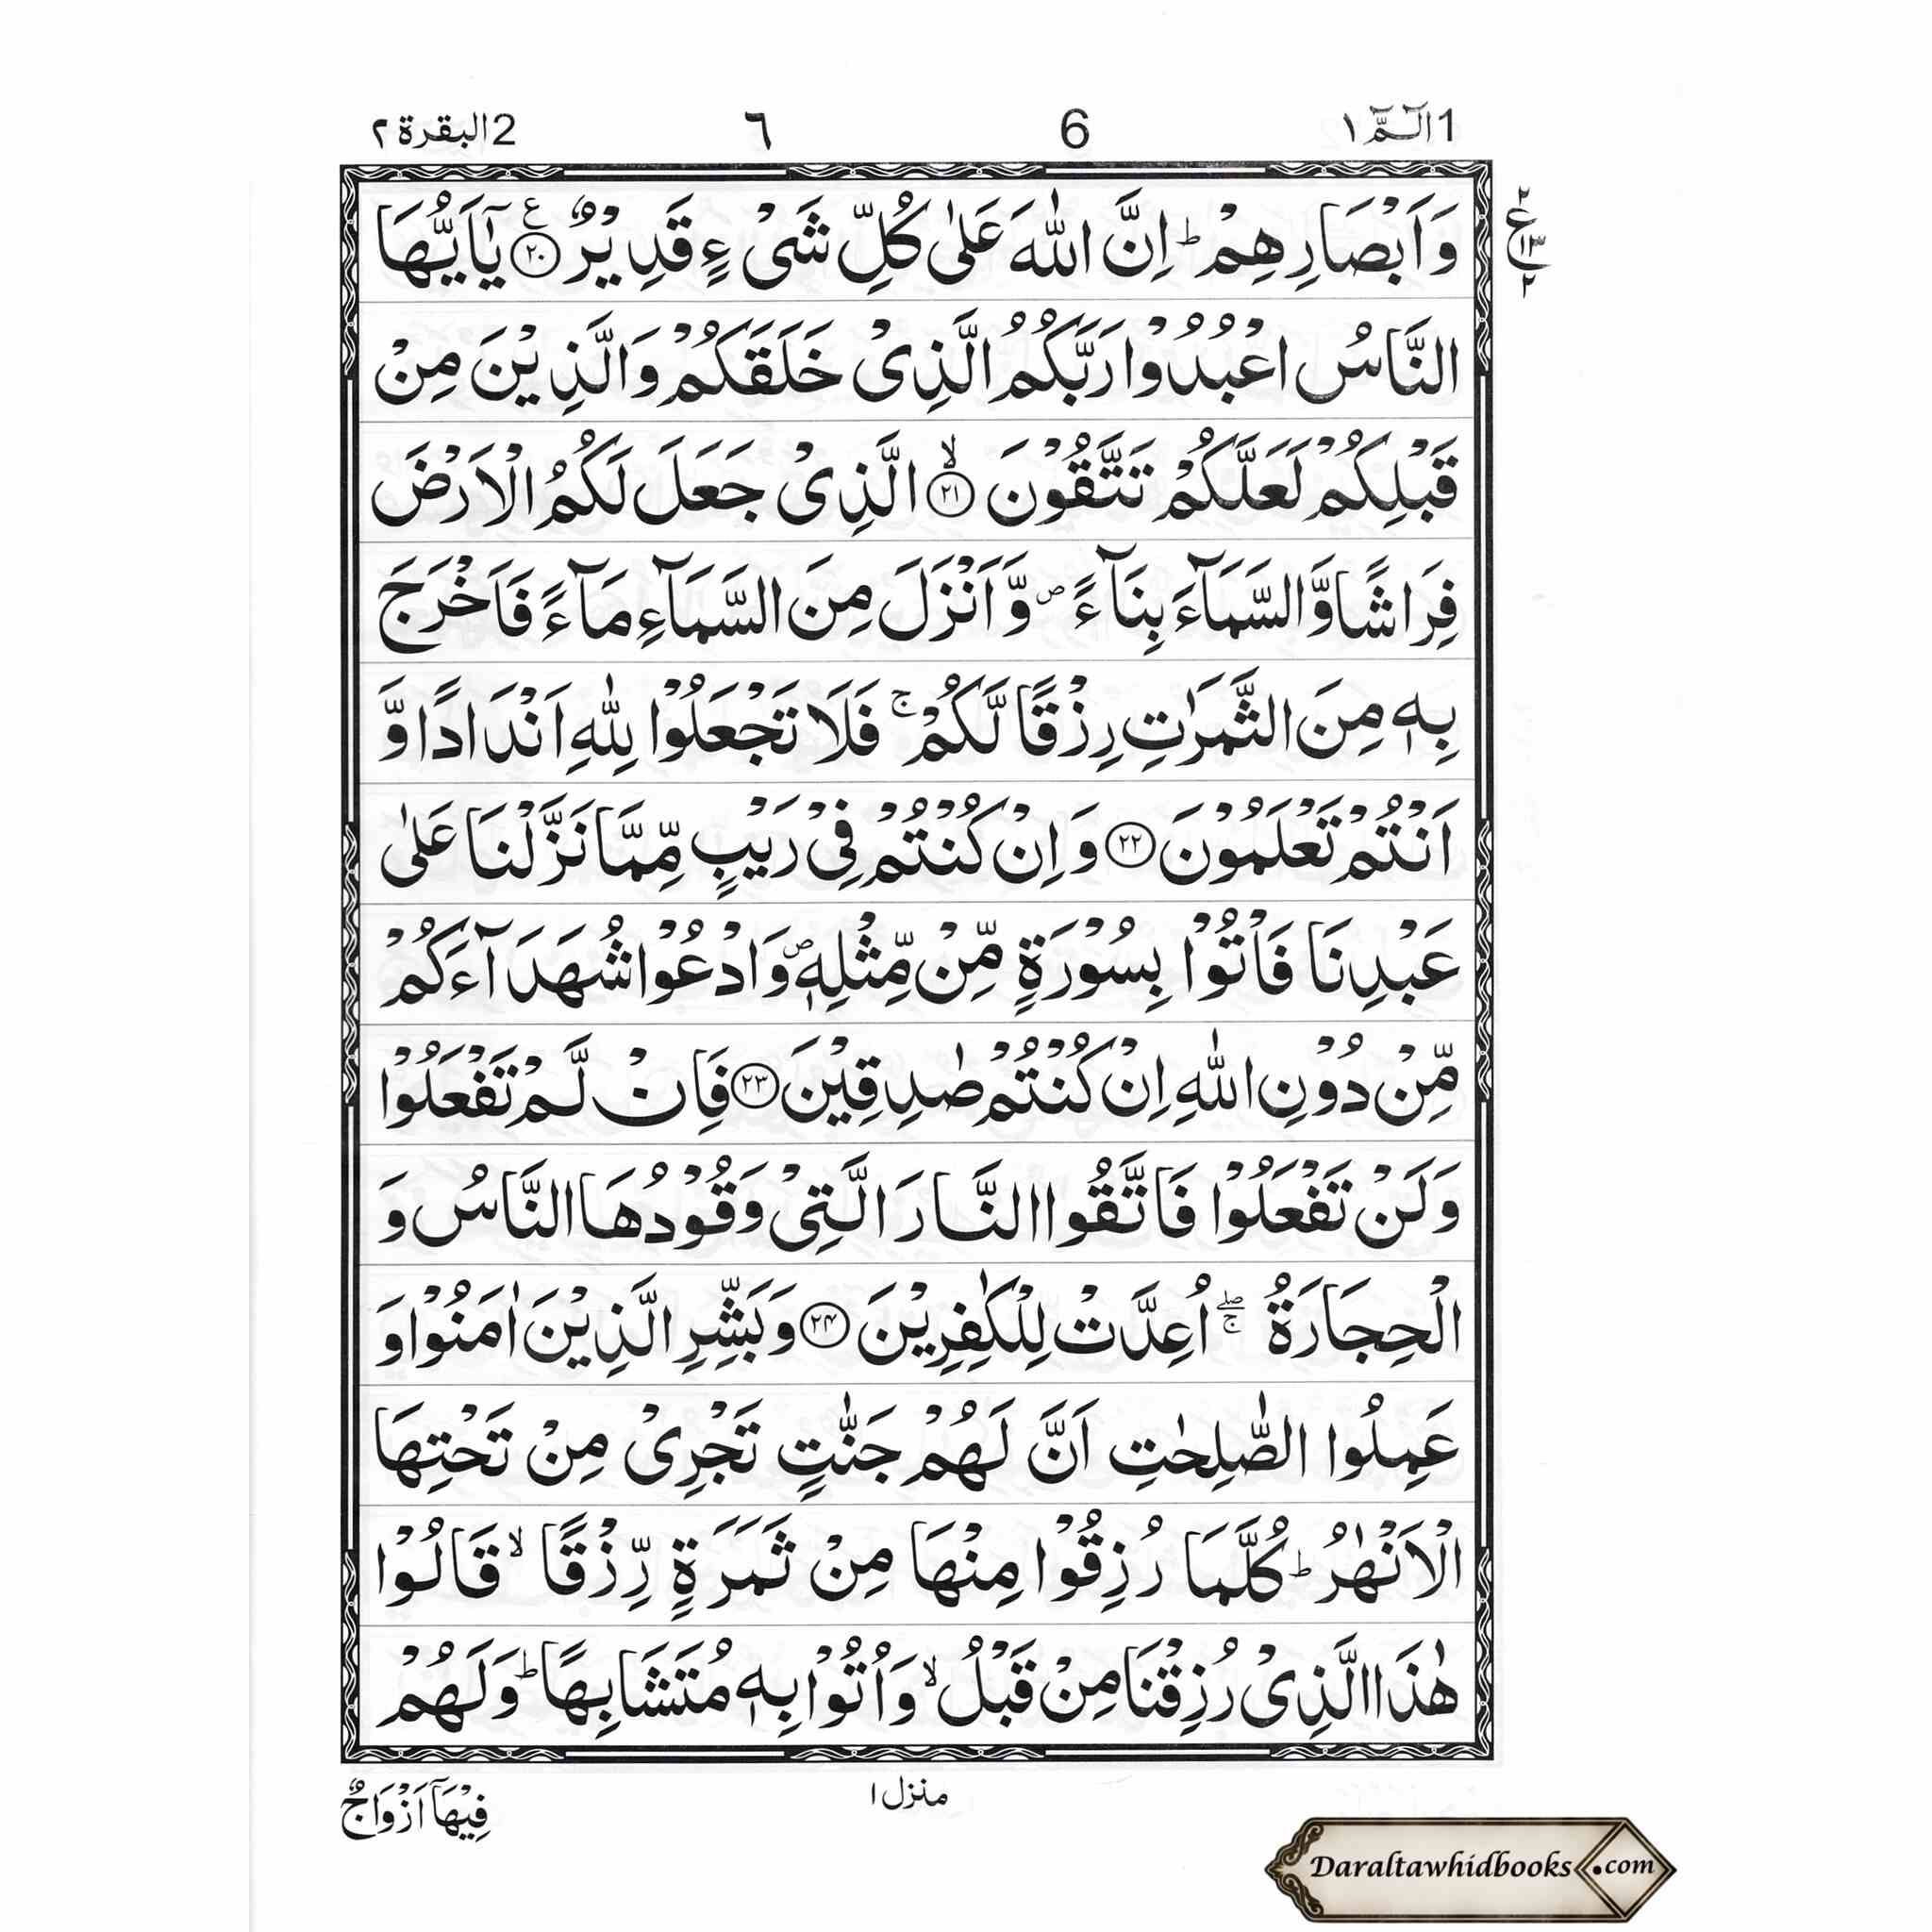 1 الٓـمّٓ ١ 6 ٦ 2 البقرة ٢
وَاَبْصَارِهِمْ ؕ اِنَّ اللّٰهَ عَلٰى كُلِّ شَىْءٍ قَدِيْرٌ ﴿۲۰﴾ ع يٰۤاَيُّهَا
٢ ع ١٣ ٢
النَّاسُ اعْبُدُوْا رَبَّكُمُ الَّذِىْ خَلَقَكُمْ وَالَّذِيْنَ مِنْ
قَبْلِكُمْ لَعَلَّكُمْ تَتَّقُوْنَ ﴿۲۱﴾ ۙ الَّذِىْ جَعَلَ لَكُمُ الْاَرْضَ
فِرَاشًا وَّالسَّمَآءَ بِنَآءً ص وَّاَنْزَلَ مِنَ السَّمَآءِ مَآءً فَاَخْرَجَ
بِهٖ مِنَ الثَّمَرٰتِ رِزْقًا لَّكُمْ ۚ فَلَا تَجْعَلُوْا لِلّٰهِ اَنْدَادًا وَّ
اَنْتُمْ تَعْلَمُوْنَ ﴿۲۲﴾ وَاِنْ كُنْتُمْ فِىْ رَيْبٍ مِّمَّا نَزَّلْنَا عَلٰى
عَبْدِنَا فَاْتُوْا بِسُوْرَةٍ مِّنْ مِّثْلِهٖ ص وَادْعُوْا شُهَدَآءَكُمْ
مِّنْ دُوْنِ اللّٰهِ اِنْ كُنْتُمْ صٰدِقِيْنَ ﴿۲۳﴾ فَاِنْ لَّمْ تَفْعَلُوْا
وَلَنْ تَفْعَلُوْا فَاتَّقُوا النَّارَ الَّتِىْ وَقُوْدُهَا النَّاسُ وَ
الْحِجَارَةُ ۖۚ اُعِدَّتْ لِلْكٰفِرِيْنَ ﴿۲۴﴾ وَبَشِّرِ الَّذِيْنَ اٰمَنُوْا وَ
عَمِلُوا الصّٰلِحٰتِ اَنَّ لَهُمْ جَنّٰتٍ تَجْرِىْ مِنْ تَحْتِهَا
الْاَنْهٰرُ ؕ كُلَّمَا رُزِقُوْا مِنْهَا مِنْ ثَمَرَةٍ رِّزْقًا ۙ قَالُوْا
هٰذَا الَّذِىْ رُزِقْنَا مِنْ قَبْلُ ۙ وَاُتُوْا بِهٖ مُتَشَابِهًا ؕ وَلَهُمْ
منزل ١
فِيْهَآ اَزْوَاجٌ
Daraltawhidbooks.com